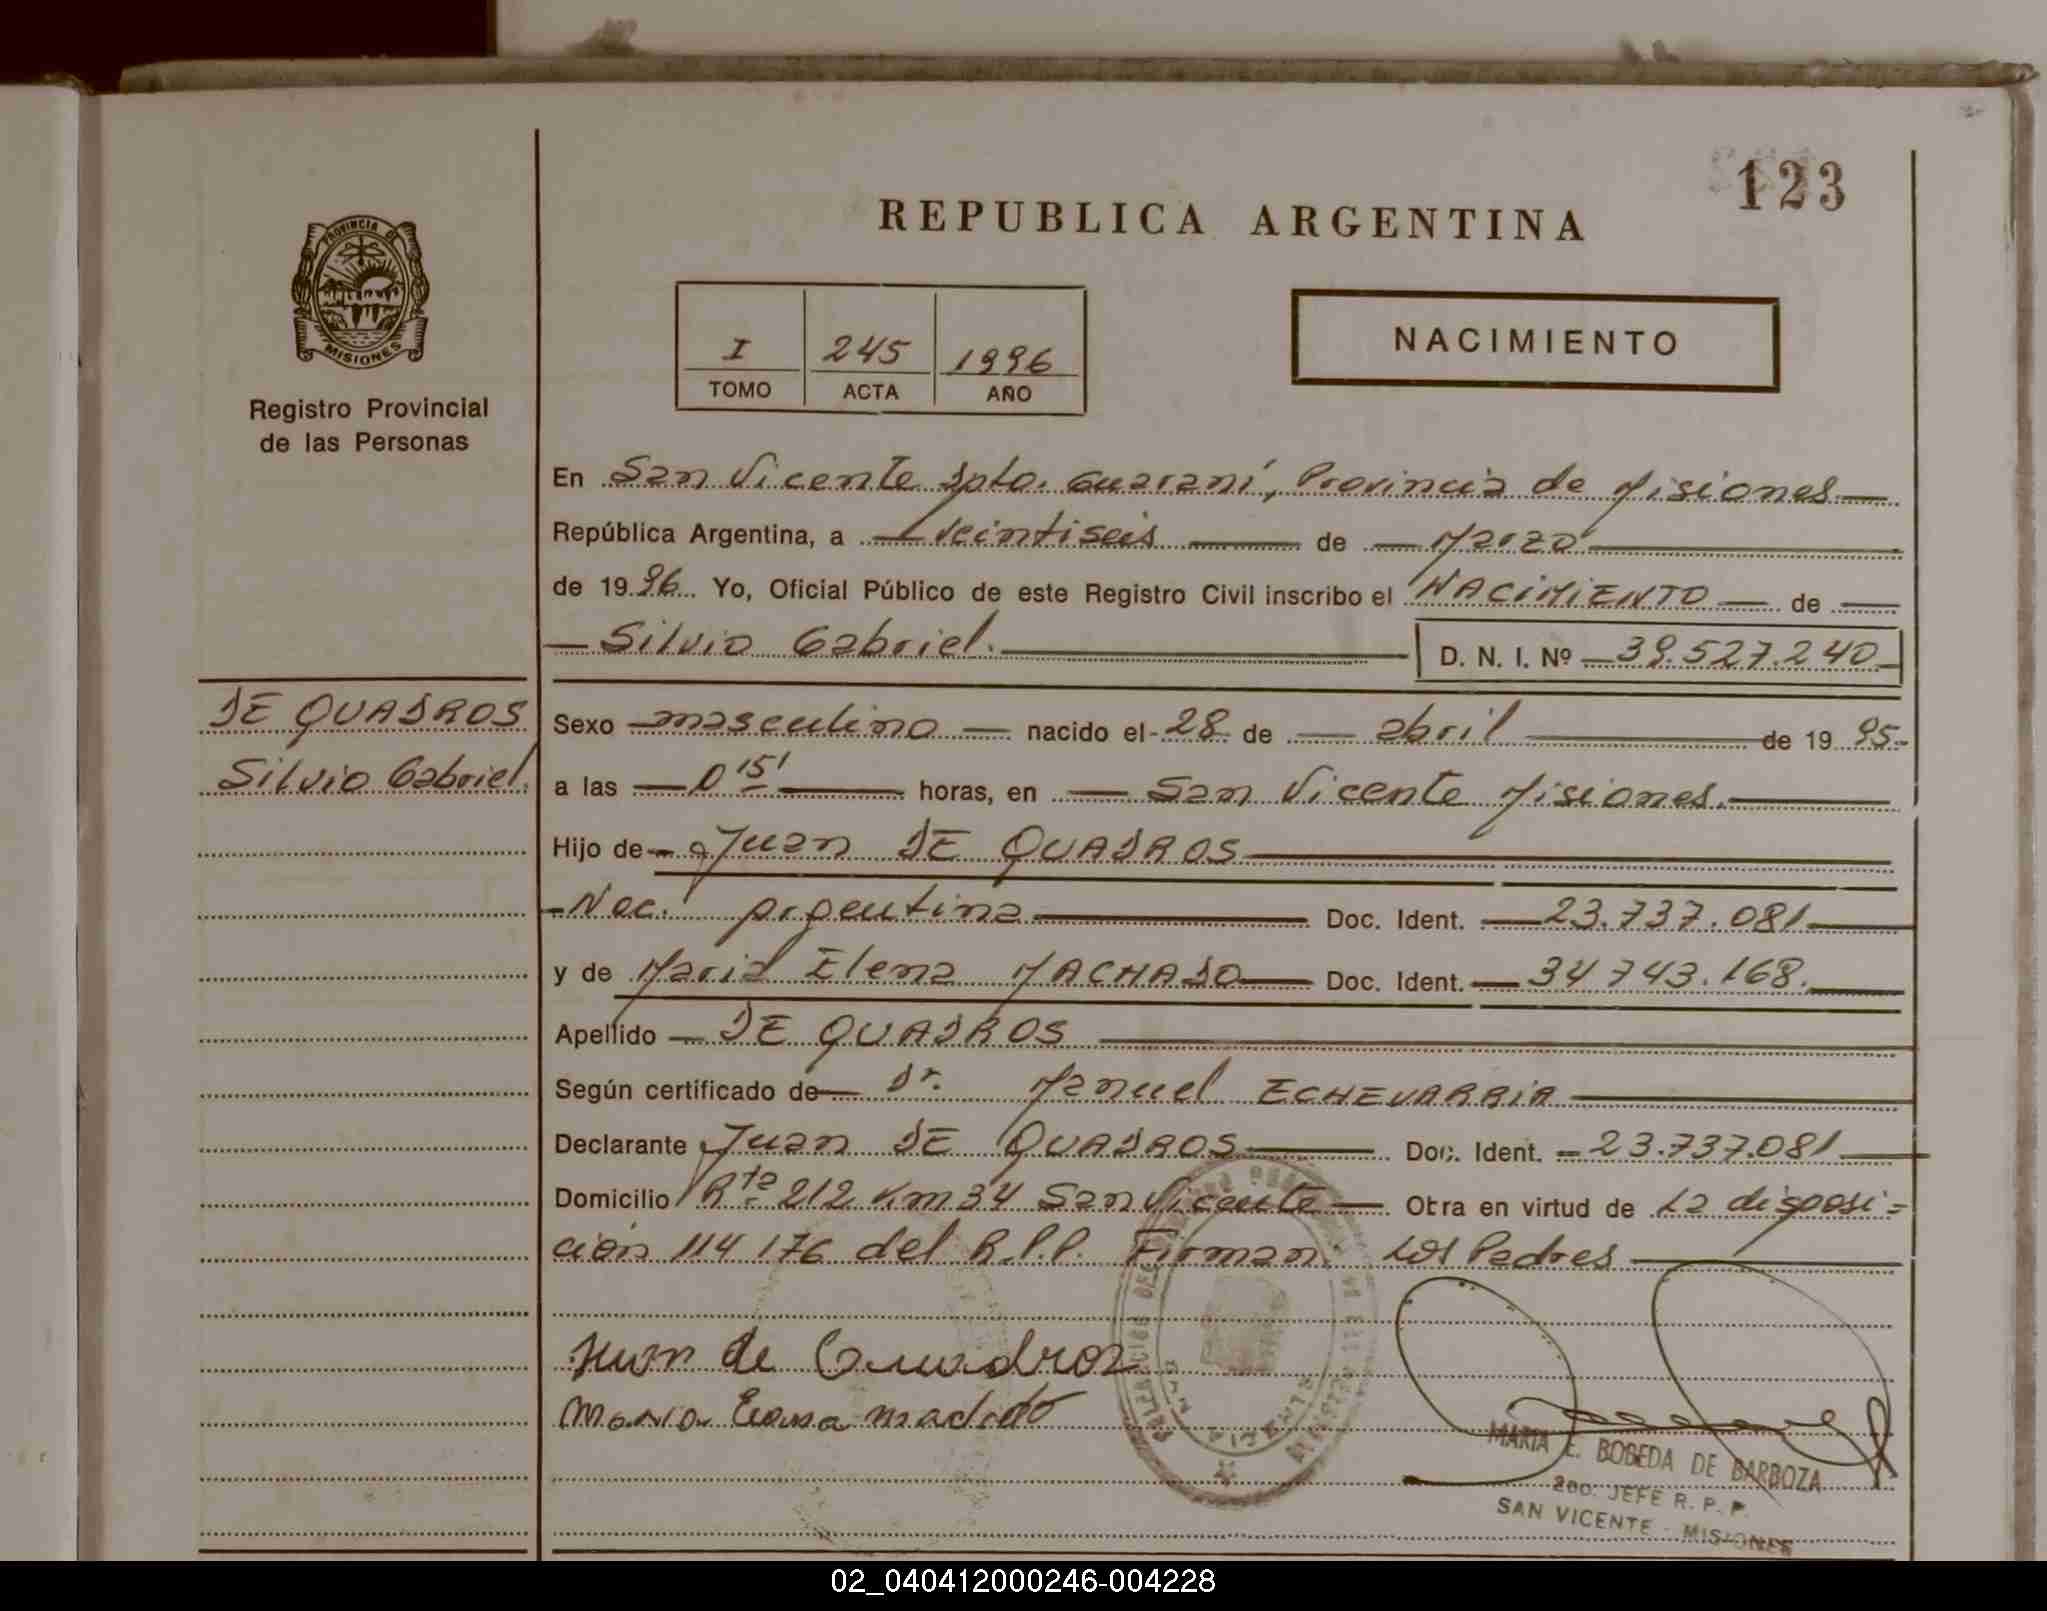 123
REPUBLICA ARGENTINA
PROVINCIA DE
MISIONES
Registro Provincial
de las Personas
I 245 1996
TOMO ACTA AÑO
NACIMIENTO
En San Vicente Dpto. Guaraní, Provincia de Misiones
República Argentina, a veintiseis de Marzo
de 1996 Yo, Oficial Público de este Registro Civil inscribo el NACIMIENTO de
Silvio Gabriel. D. N. I. Nº 39.527.240
DE QUADROS
Silvio Gabriel.
Sexo masculino nacido el 28 de abril de 1995
a las 0 15' horas, en San Vicente Misiones.
Hijo de Juan DE QUADROS
Nac. Argentina Doc. Ident. 23.737.081
y de Maria Elena MACHADO Doc. Ident. 34 743.168.
Apellido DE QUADROS
Según certificado de Dr. Manuel ECHEVARRIA
Declarante Juan DE QUADROS Doc. Ident. 23.737.081
Domicilio Rta 212 Km 34 San Vicente Otra en virtud de La disposi=
ción 114 176 del R.P.P. Firman Los Padres
Juan de Cuadros
Maria
MARIA E. BOBEDA DE BARBOZA
2do. JEFE R. P. P.
SAN VICENTE - MISIONES
02_040412000246-004228